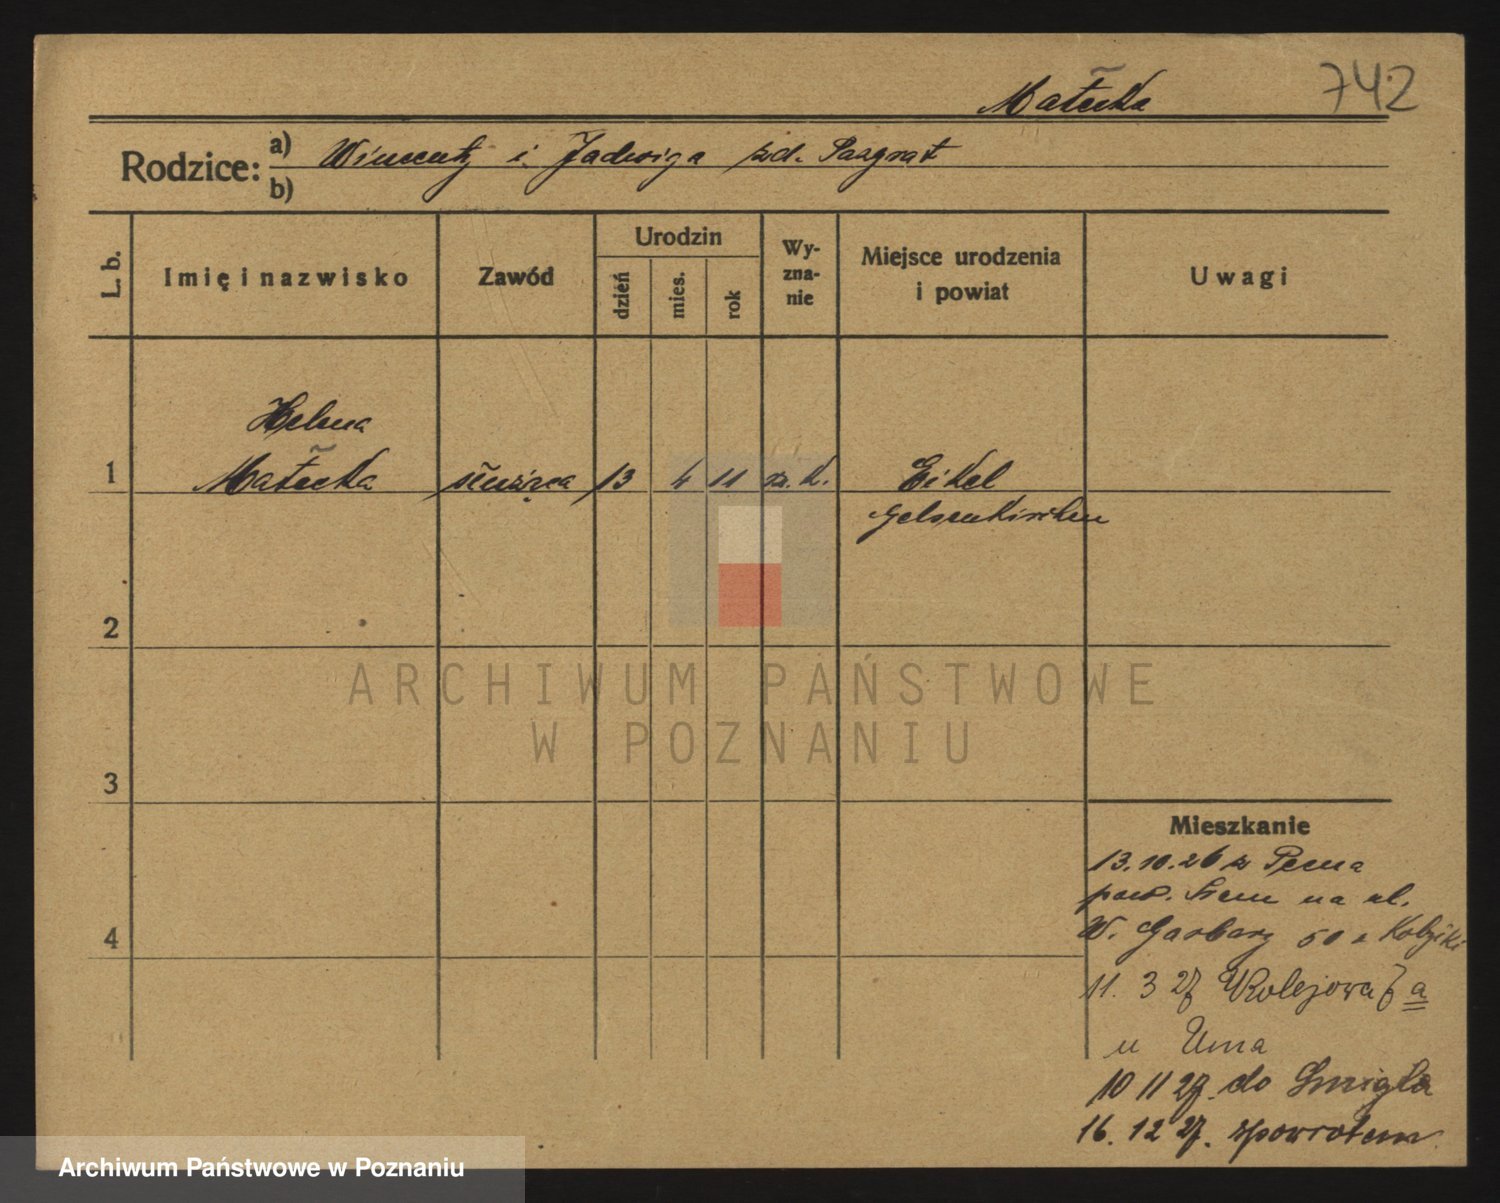 Małecka
742
Rodzice: a) Wincenty i Jadwiga zd.
b)
L. b.
Imię i nazwisko
Zawód
Urodzin
dzień
mies.
rok
Wy-
zna-
nie
Miejsce urodzenia
i powiat
Uwagi
Helena
1 Małecka służąca 13 4 11 rz. k. Eikel
Gelsenkirchen
2
3
4
Mieszkanie
13.10.26 z
pow. na ul.
W. Garbary 50
11. 3 27 Kolejowa 7 a
u
10 11 27. do Śmigla
16. 12 27. zpowrotem
ARCHIWUM PAŃSTWOWE
W POZNANIU
Archiwum Państwowe w Poznaniu